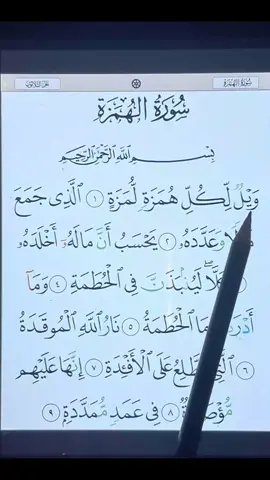 سُورَةُ الهُمَزَةِ
سُورَةُ الهُمَزَةِ
بِسْمِ اللَّهِ الرَّحْمَٰنِ الرَّحِيمِ
وَيْلٌ لِّكُلِّ هُمَزَةٍ لُّمَزَةٍ ١ الَّذِى جَمَعَ
وَعَدَّدَهُۥ ٢ يَحْسَبُ أَنَّ مَالَهُۥٓ أَخْلَدَهُۥ
لَيُنۢبَذَنَّ فِى الْحُطَمَةِ ٤ وَمَآ
مَا الْحُطَمَةُ ٥ نَارُ اللَّهِ الْمُوقَدَةُ
٦ الَّتِى تَطَّلِعُ عَلَى الْأَفْـِٔدَةِ ٧ إِنَّهَا عَلَيْهِم
مُّؤْصَدَةٌ ٨ فِى عَمَدٍ مُّمَدَّدَةٍۭ ٩